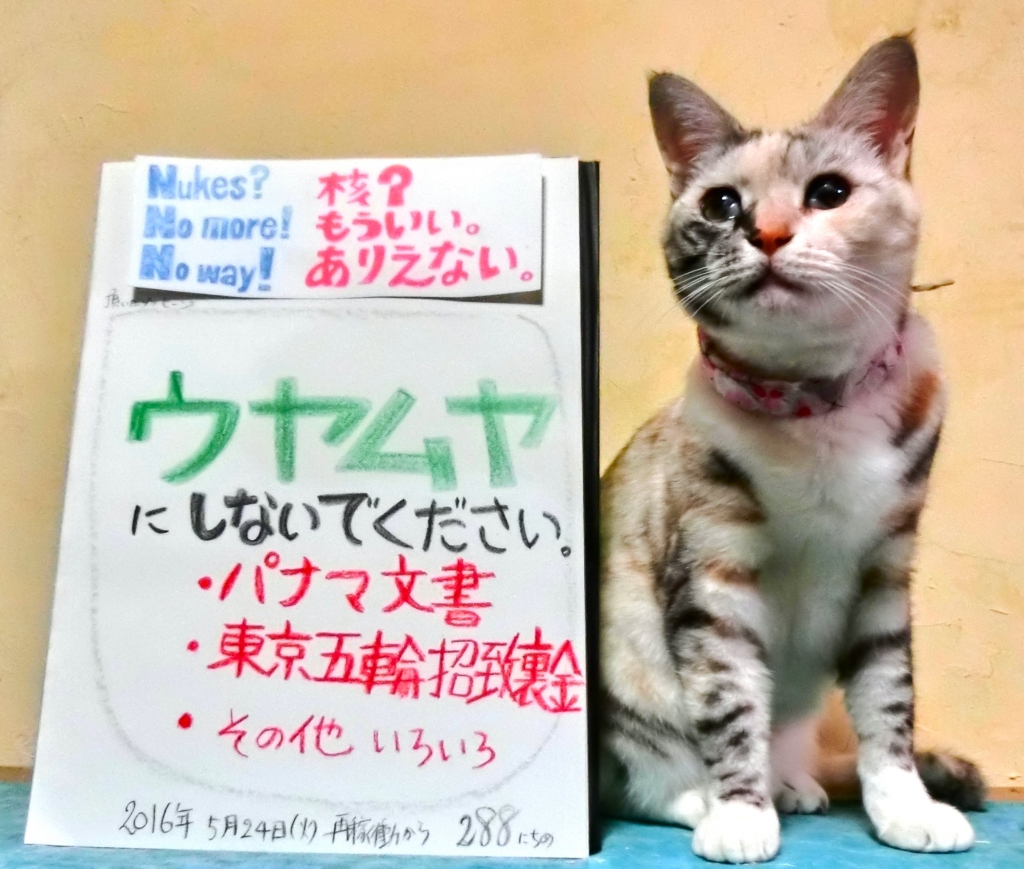 Nukes? 核?
No more! もういい。
No way! ありえない。
ウヤムヤ
にしないでください。
・パナマ文書
・東京五輪招致裏金
・その他いろいろ
2016年 5月24日(火) 再稼働から 288にちめ